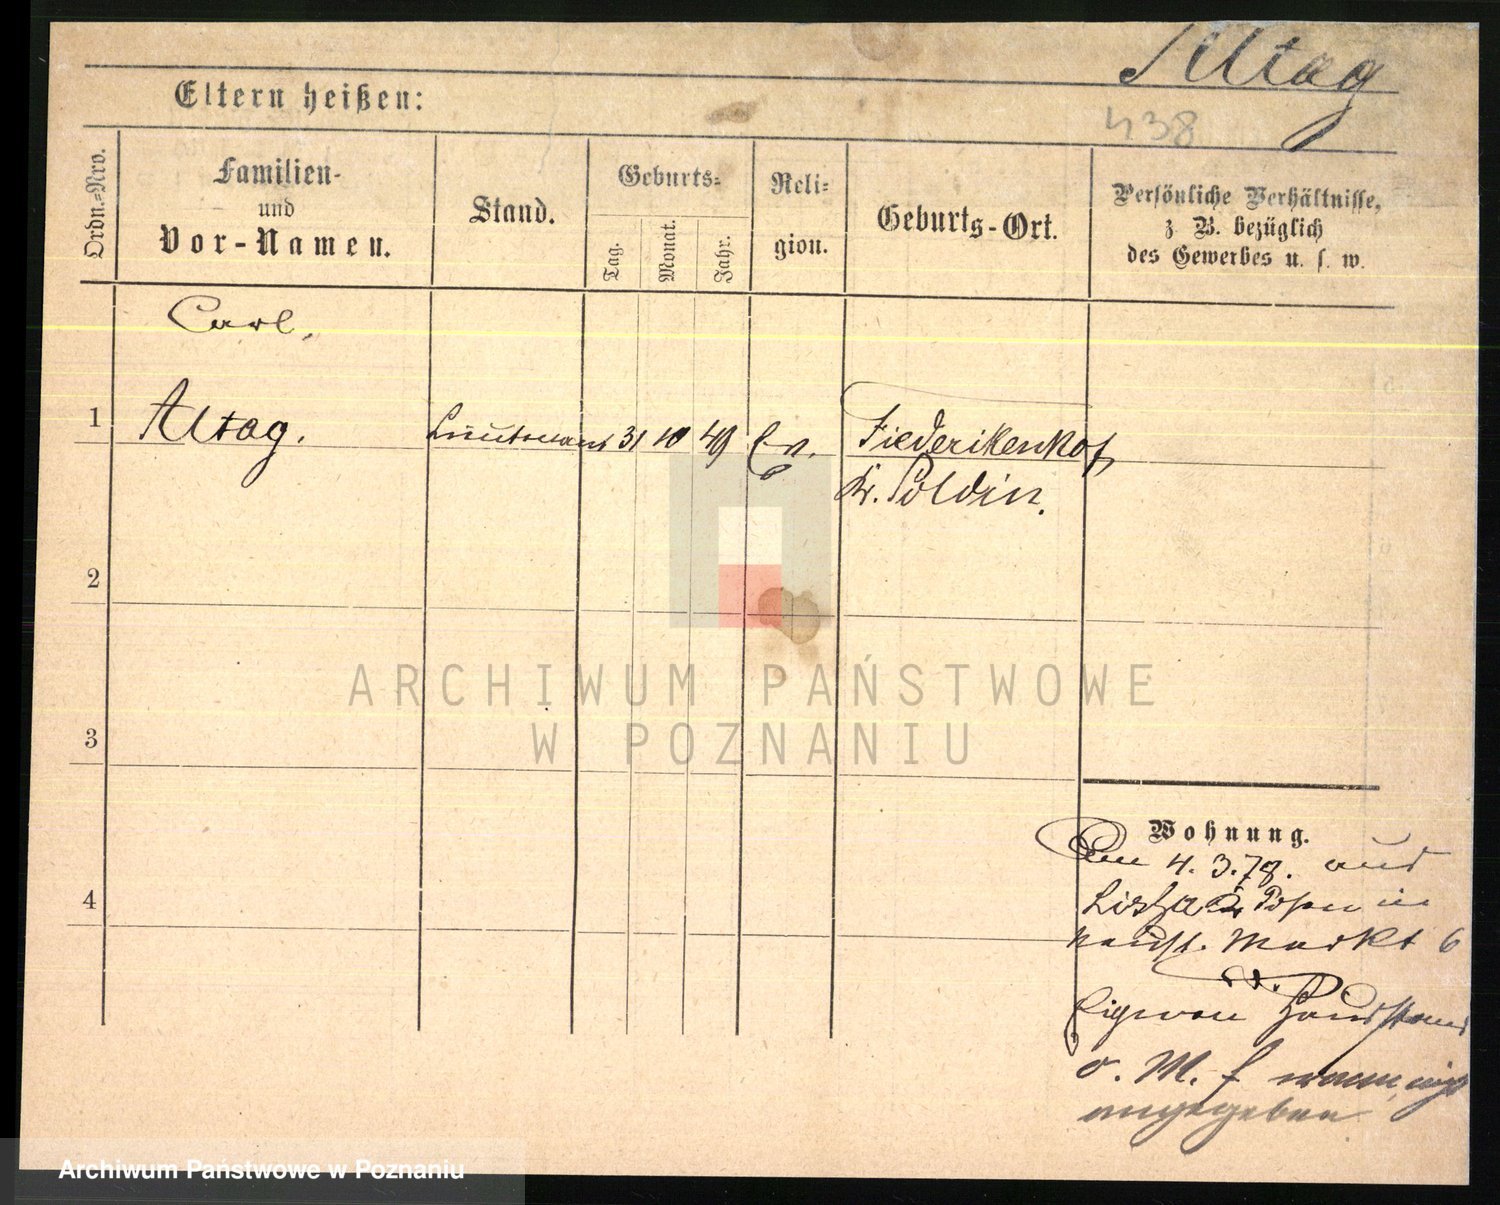 Altag
Eltern heißen:
438
Ordn.-Nro.
Familien-
und
Vor-Namen.
Stand.
Geburts-
Tag.
Monat.
Jahr.
Reli-
gion.
Geburts-Ort.
Persönliche Verhältnisse,
z. B. bezüglich
des Gewerbes u. s. w.
Carl,
1 Altag. Lieutenant 31 10 49 Ev. Friederikenhof
Kr. Soldin.
2
ARCHIWUM PAŃSTWOWE
W POZNANIU
3
Wohnung.
4.3.78. aus
Posen in
4
Markt 6
Eigenen Hausstand
o. M. f
angegeben
Archiwum Państwowe w Poznaniu